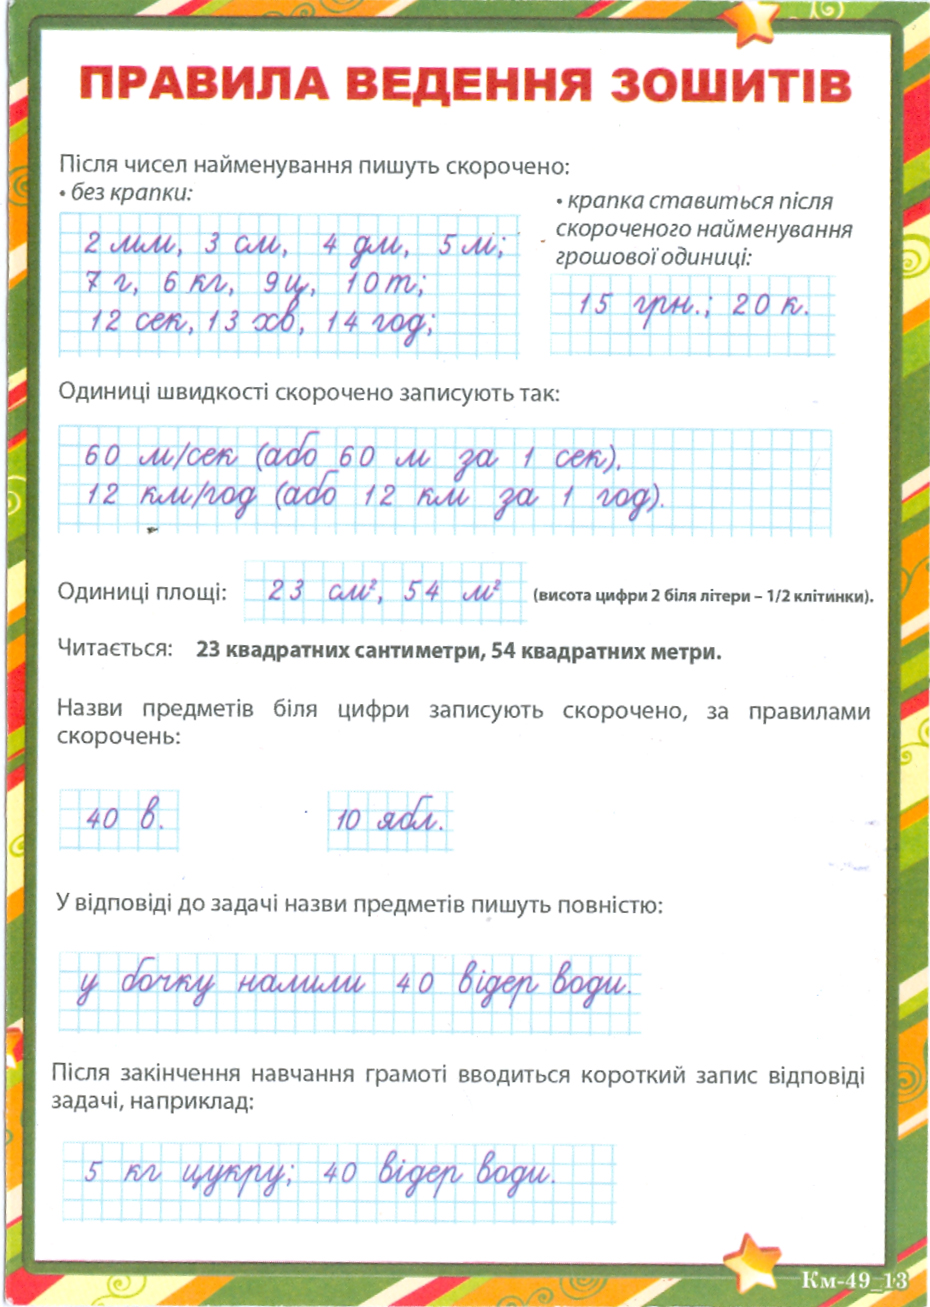 ПРАВИЛА ВЕДЕННЯ ЗОШИТІВ
Після чисел найменування пишуть скорочено:
• без крапки:
2 мм, 3 см, 4 дм, 5 м;
7 г, 6 кг, 9 ц, 10 т;
12 сек, 13 хв, 14 год;
• крапка ставиться після
скороченого найменування
грошової одиниці:
15 грн.; 20 к.
Одиниці швидкості скорочено записують так:
60 м/сек (або 60 м за 1 сек).
12 км/год (або 12 км за 1 год).
Одиниці площі: 23 см², 54 м² (висота цифри 2 біля літери – 1/2 клітинки).
Читається: 23 квадратних сантиметри, 54 квадратних метри.
Назви предметів біля цифри записують скорочено, за правилами
скорочень:
40 в. 10 ябл.
У відповіді до задачі назви предметів пишуть повністю:
у бочку налили 40 відер води.
Після закінчення навчання грамоті вводиться короткий запис відповіді
задачі, наприклад:
5 кг цукру; 40 відер води.
Км-49_13